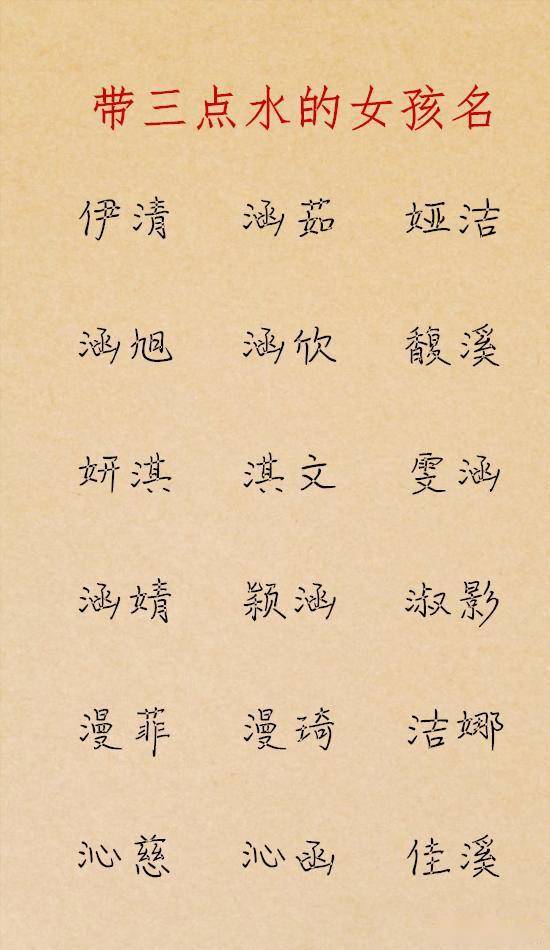 带三点水的女孩名
伊清 涵茹 娅洁
涵旭 涵欣 馥溪
妍淇 淇文 雯涵
涵婧 颖涵 淑影
漫菲 漫琦 洁娜
沁慈 沁函 佳溪